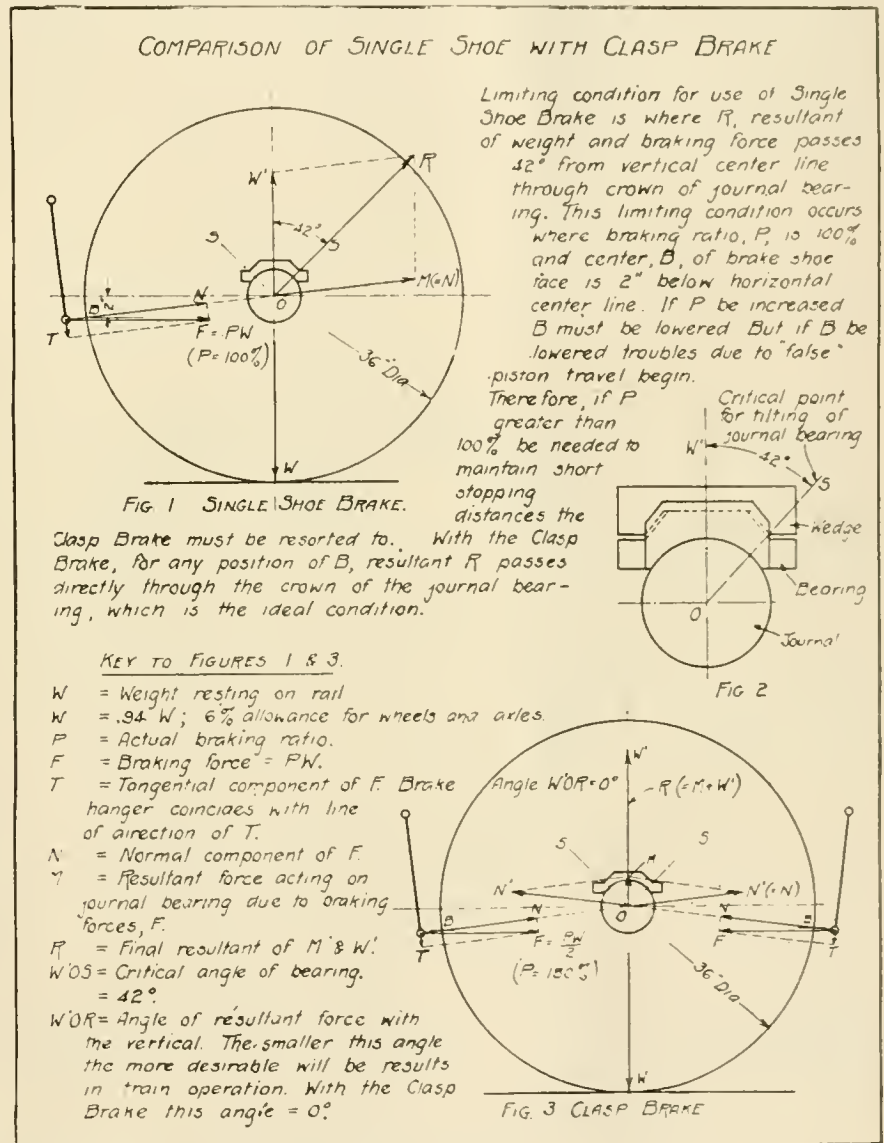 COMPARISON OF SINGLE SHOE WITH CLASP BRAKE
Limiting condition for use of Single
Shoe Brake is where R, resultant
of weight and braking force passes
42° from vertical center line
through crown of journal bear-
ing. This limiting condition occurs
where braking ratio, P, is 100%
and center, B, of brake shoe
face is 2" below horizontal
center line. If P be increased
B must be lowered But if B be
lowered troubles due to "false"
piston travel begin.
Therefore, if P
greater than
100% be needed to
maintain short
stopping
distances the
Clasp Brake must be resorted to. With the Clasp
Brake, for any position of B, resultant R passes
directly through the crown of the journal bear-
ing, which is the ideal condition.
W'
R
42°
S
S
M(=N)
O
B
2"
N
T
F = PW
(P = 100%)
36" Dia
W
FIG. 1 SINGLE SHOE BRAKE.
Critical point
for tilting of
journal bearing
W'
42°
S
Wedge
Bearing
O
Journal
FIG 2
KEY TO FIGURES 1 & 3.
W = Weight resting on rail
W = .94 W; 6% allowance for wheels and axles.
P = Actual braking ratio.
F = Braking force = PW.
T = Tangential component of F. Brake
hanger coincides with line
of direction of T.
N = Normal component of F.
M = Resultant force acting on
journal bearing due to braking
forces, F.
R = Final resultant of M & W'.
W'OS = Critical angle of bearing.
= 42°.
W'OR = Angle of resultant force with
the vertical. The smaller this angle
the more desirable will be results
in train operation. With the Clasp
Brake this angle = 0°.
Angle W'OR = 0°
W'
R (= M + W')
S
S
M
N'
N'(=N)
O
B
N
N
B
T
F = PW/2
F
T
(P = 150%)
36" Dia
W
FIG. 3 CLASP BRAKE